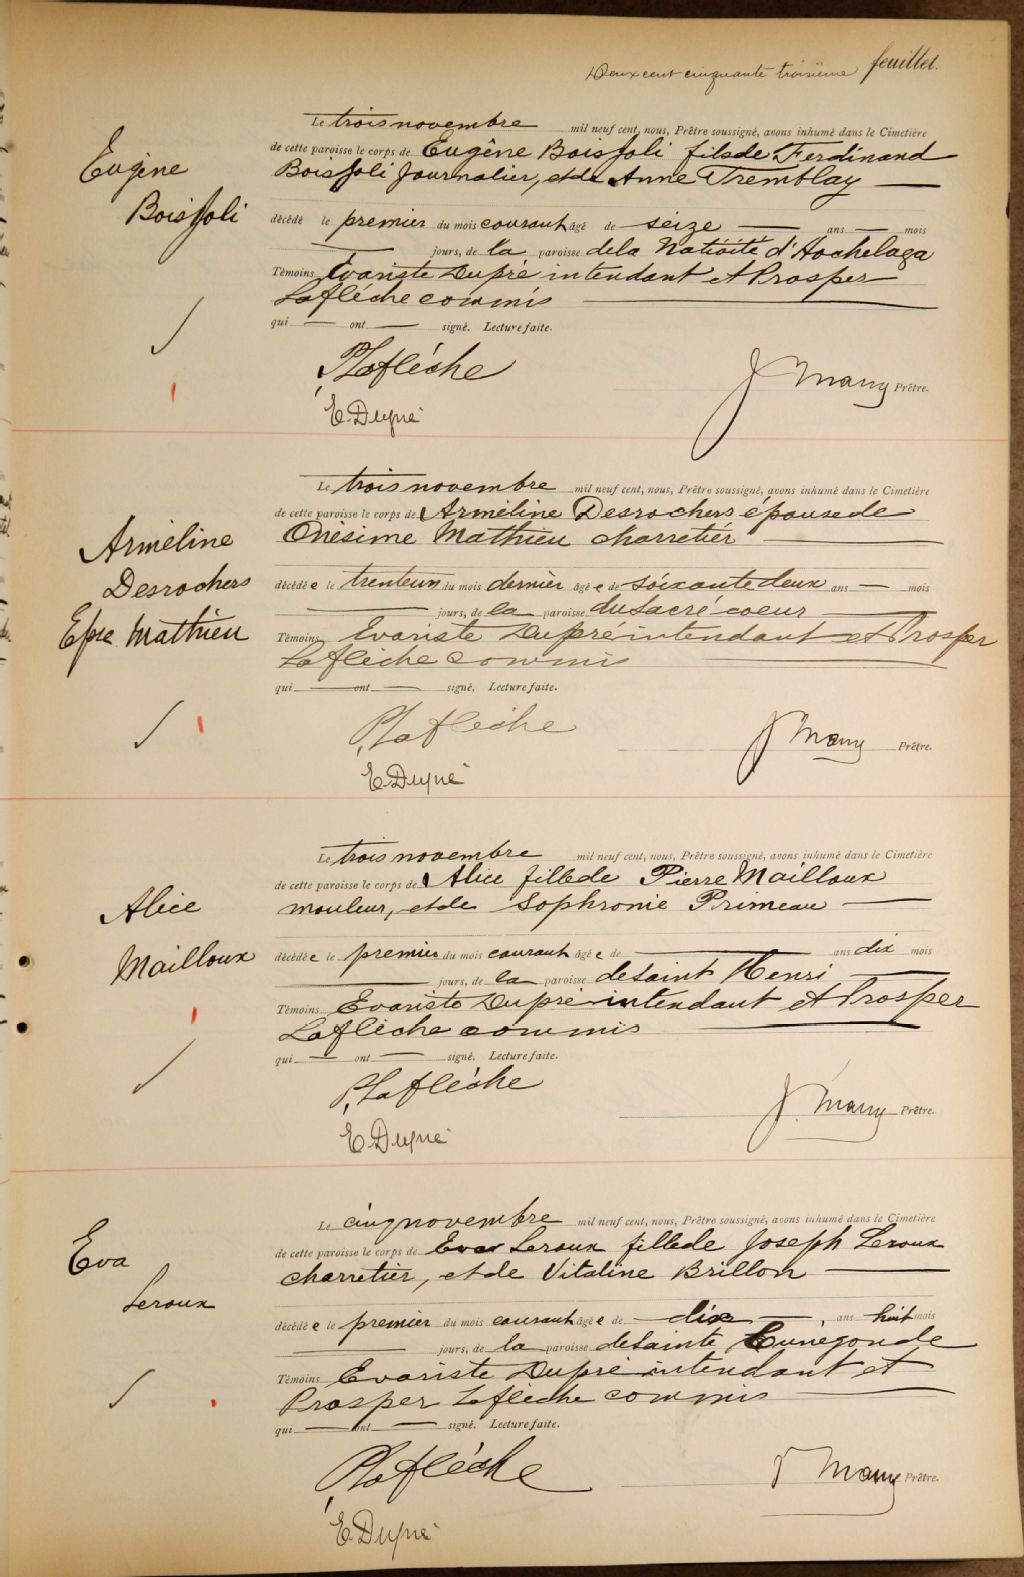 Deux cent cinquante troisième feuillet.
Le trois novembre mil neuf cent, nous, Prêtre soussigné, avons inhumé dans le Cimetière
de cette paroisse le corps de Eugène Boisjoli fils de Ferdinand
Boisjoli journalier, et de Anne Tremblay
Eugène
Boisjoli
décédé le premier du mois courant âgé de seize ans mois
jours, de la paroisse de la Nativité d'Hochelaga
Témoins Evariste Dupré intendant et Prosper
Laflèche commis
qui ont signé. Lecture faite.
P. Laflèche
J Marry Prêtre.
E. Dupré
Le trois novembre mil neuf cent, nous, Prêtre soussigné, avons inhumé dans le Cimetière
de cette paroisse le corps de Arméline Desrochers épouse de
Onésime Mathieu charretier
Arméline
Desrochers
Epse Mathieu
décédée le trenteun du mois dernier âgée de soixante deux ans mois
jours, de la paroisse du Sacré coeur
Témoins Evariste Dupré intendant et Prosper
Laflèche commis
qui ont signé. Lecture faite.
P. Laflèche
J Marry Prêtre.
E. Dupré
Le trois novembre mil neuf cent, nous, Prêtre soussigné, avons inhumé dans le Cimetière
de cette paroisse le corps de Alice fille de Pierre Mailloux
mouleur, et de Sophronie Primeau
Alice
Mailloux
décédée le premier du mois courant âgée de ans dix mois
jours, de la paroisse de Saint Henri
Témoins Evariste Dupré intendant et Prosper
Laflèche commis
qui ont signé. Lecture faite.
P. Laflèche
J. Marry Prêtre.
E. Dupré
Le cinq novembre mil neuf cent, nous, Prêtre soussigné, avons inhumé dans le Cimetière
de cette paroisse le corps de Eva Leroux fille de Joseph Leroux
charretier, et de Vitaline Brillon
Eva
Leroux
décédée le premier du mois courant âgée de dix ans huit mois
jours, de la paroisse de Sainte Cunégonde
Témoins Evariste Dupré intendant et
Prosper Laflèche commis
qui ont signé. Lecture faite.
P. Laflèche
J Marry Prêtre.
E. Dupré